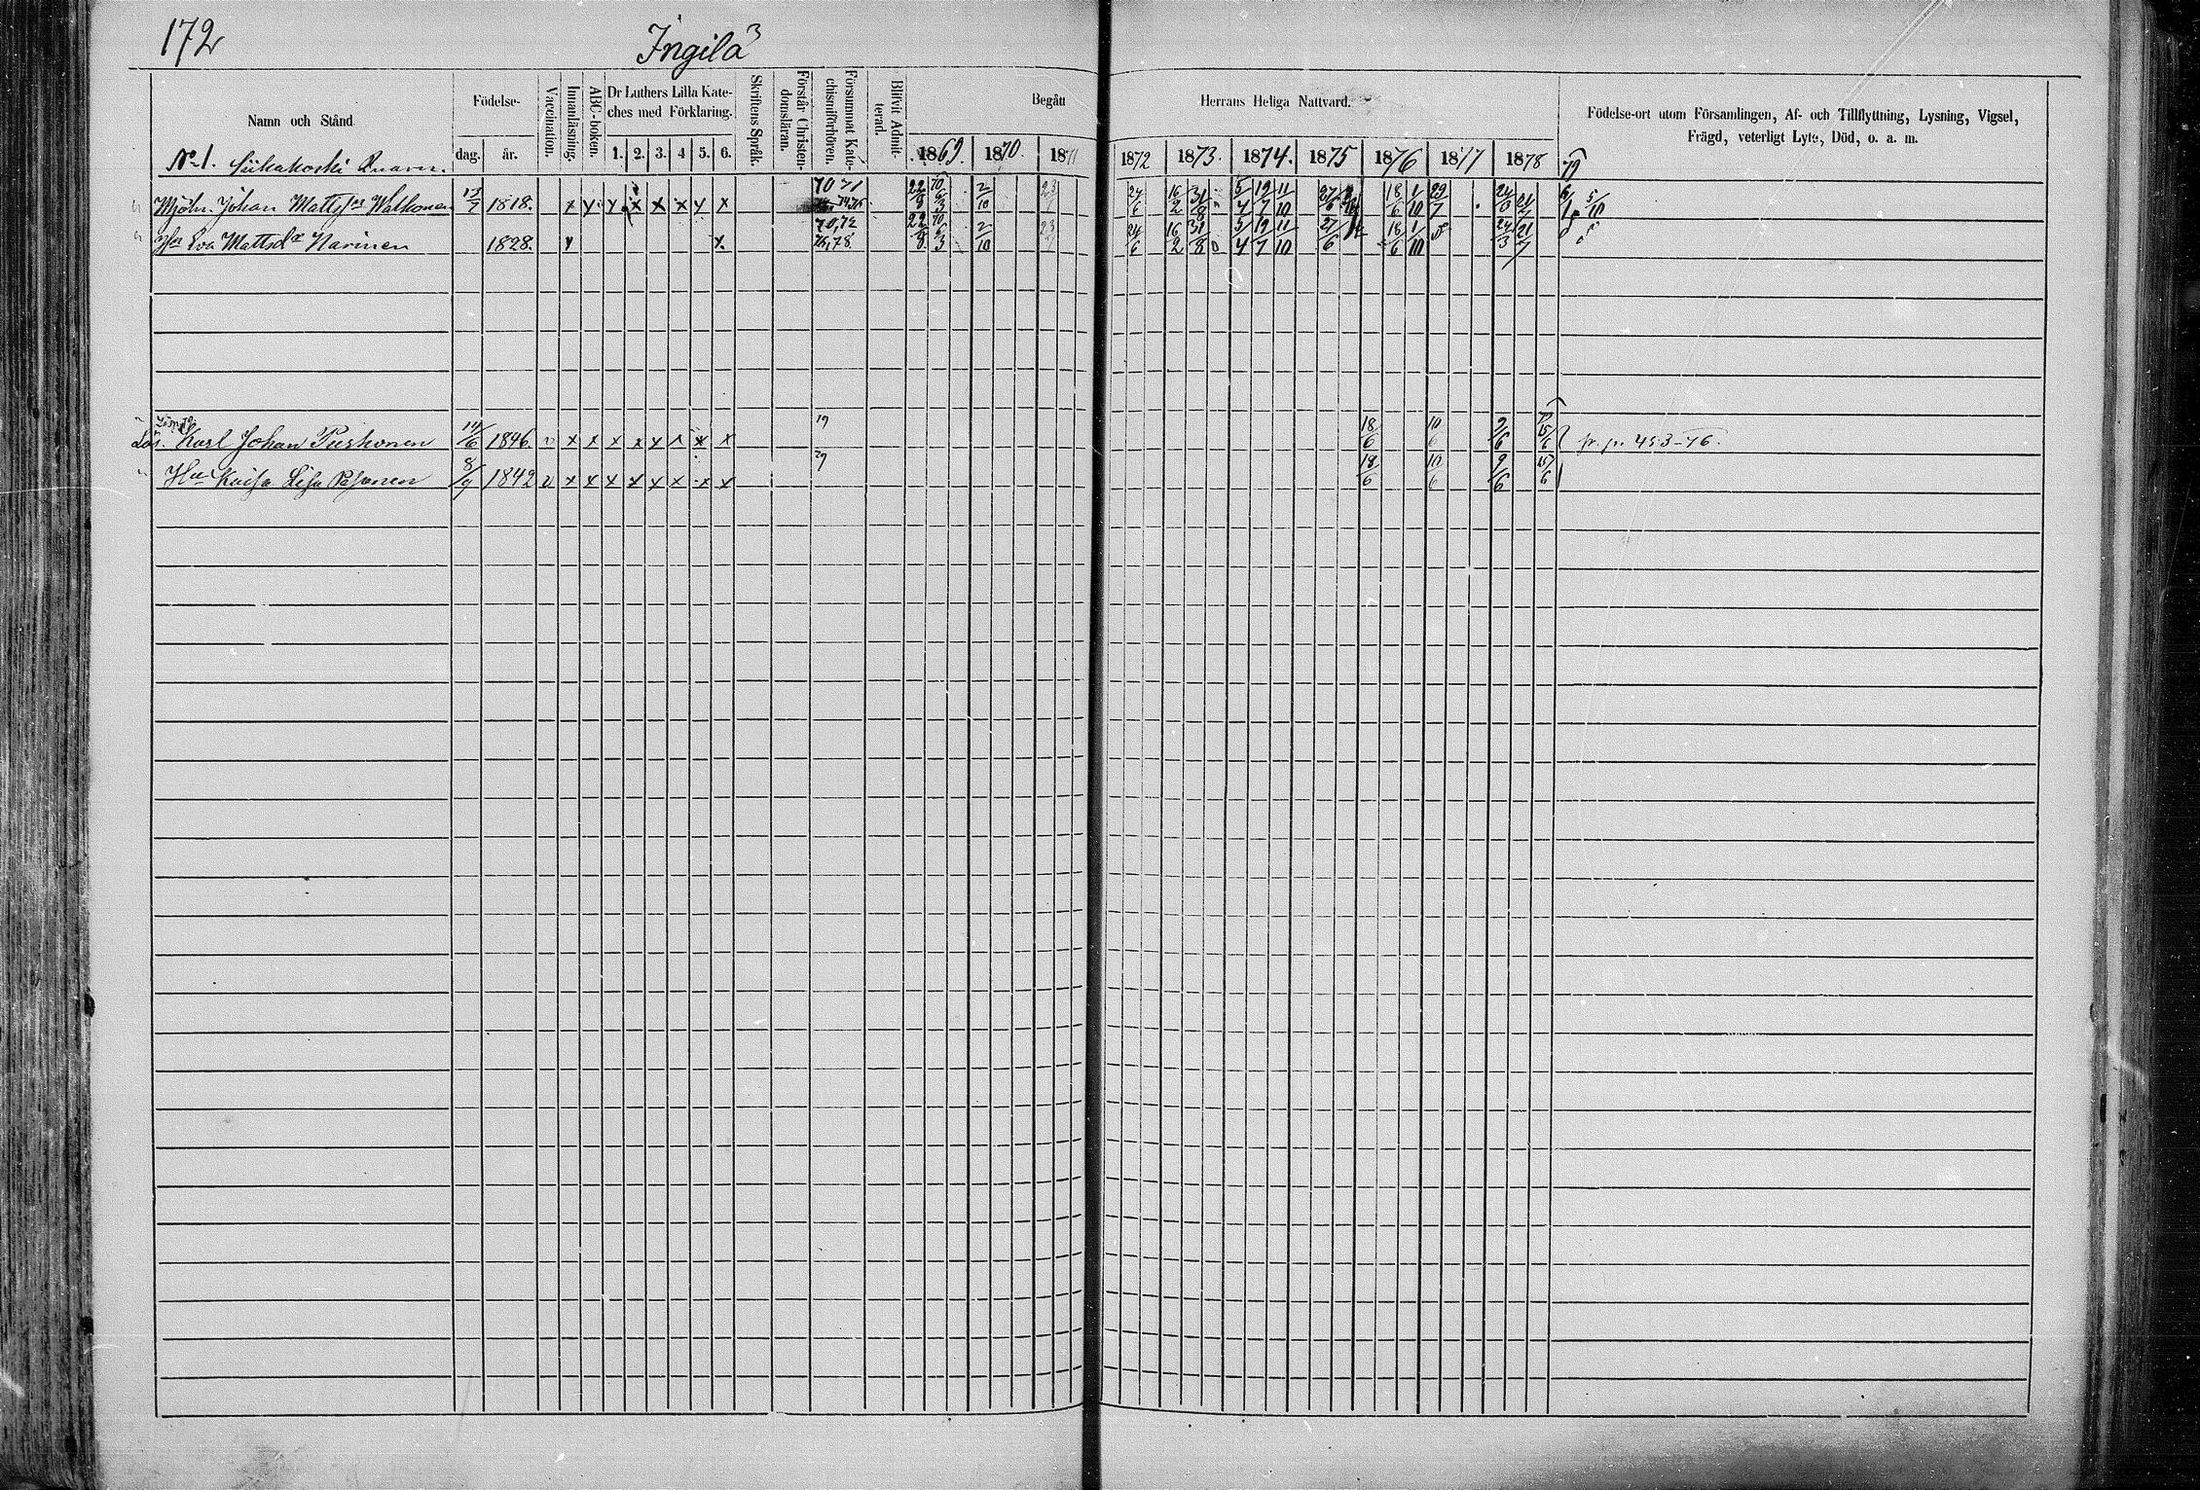 172
Ingilä 3
Namn och Stånd
Födelse-
dag. år.
Vaccination.
Innanläsning.
ABC-boken.
Dr Luthers Lilla Kate-
ches med Förklaring.
1. 2. 3. 4 5. 6.
Skriftens Språk.
Förstår Christen-
domsläran.
Försummat Kate-
chismiförhören.
Blifvit Admit-
terad.
Begått Herrans Heliga Nattvard.
1869. 1870. 1871 1872 1873. 1874. 1875 1876 1877 1878 79
Födelse-ort utom Församlingen, Af- och Tillflyttning, Lysning, Vigsel,
Frägd, veterligt Lyte, Död, o. a. m.
No 1. Siikakoski Qvarn.
Mjöln. Johan Matts sn Walkonen 13/7 1818. x x x x x x x x 70 71 22/8 2/10 23/7 24/6 16/2 31/8 5/4 19/7 11/10 27/6 18/6 1/10 29/7 24/3 21/7 5/10
Hu Eva Mattsdr Narinen 1828. x x 70,72 76,78. 22/8 2/10 23/7 24/6 16/2 31/8 5/4 19/7 11/10 27/6 18/6 1/10 24/3 21/7
Lös. Karl Johan Puskonen 14/6 1846. v x x x x x x x x 79 18/6 10/6 9/6 15/6 fr. p. 453-76.
Hu Kaisa Lisa Pasonen 8/9 1842 v x x x x x x x x 79 18/6 10/6 9/6 15/6